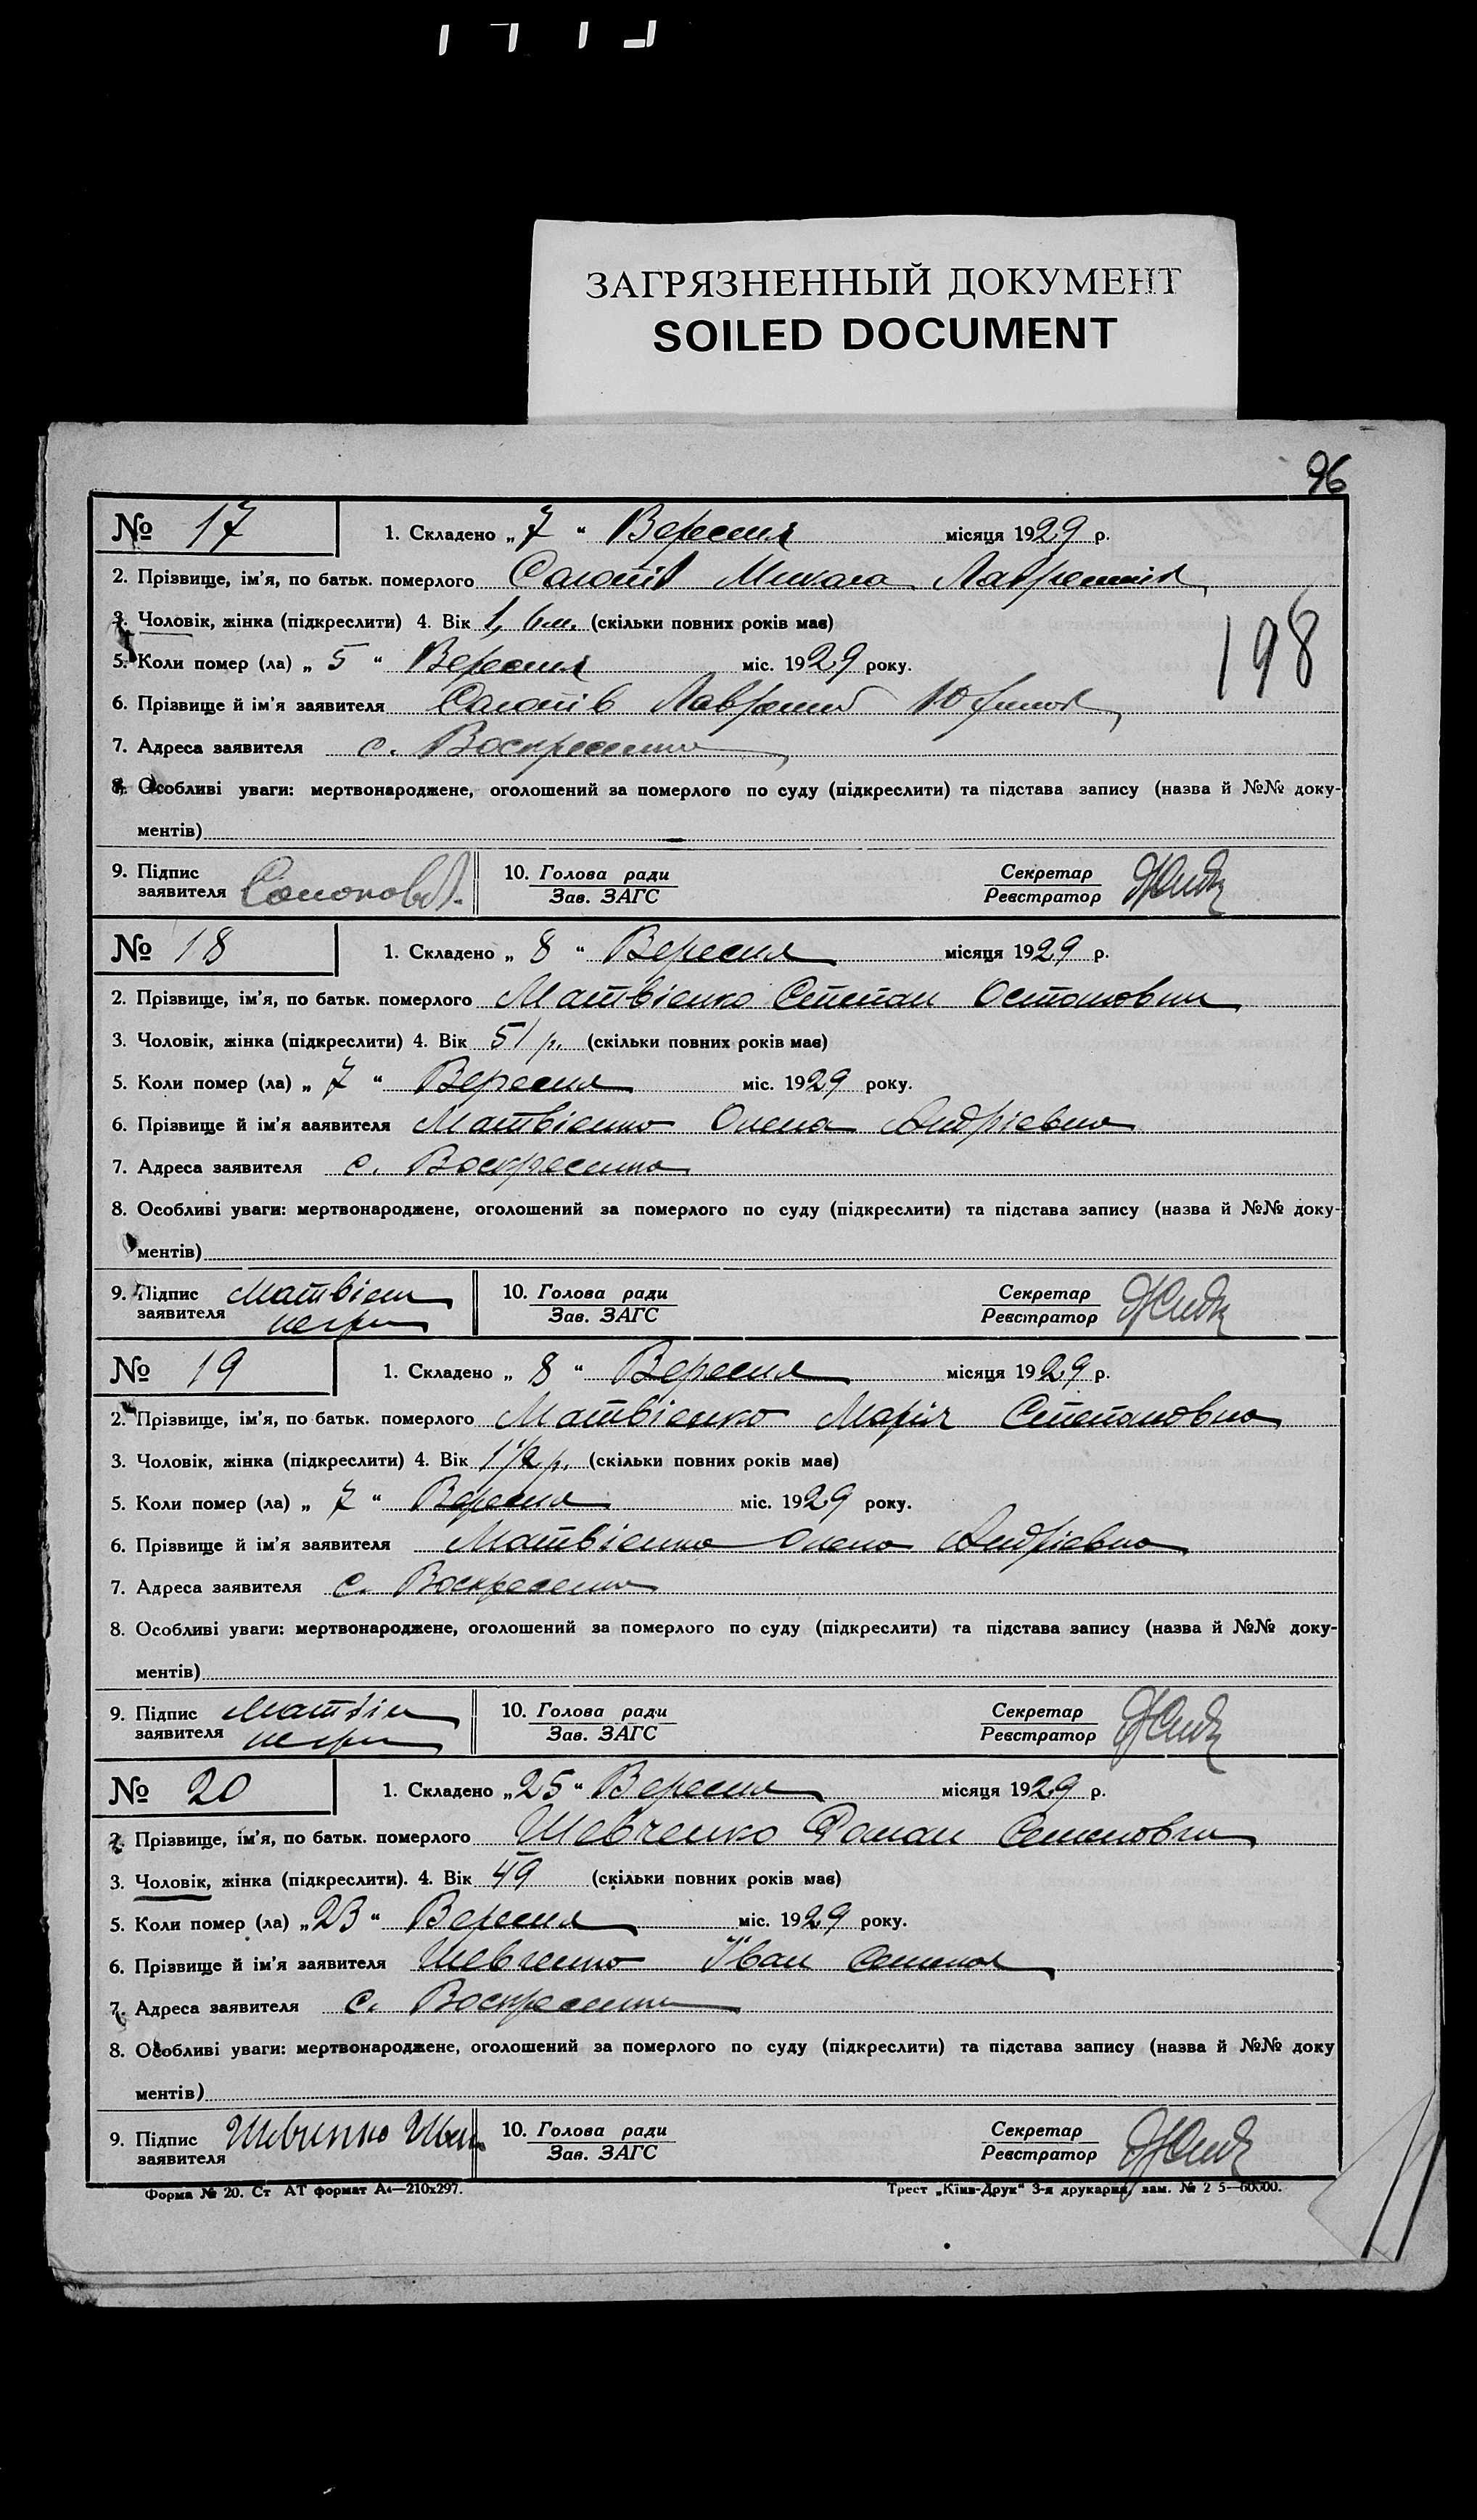 ЗАГРЯЗНЕННЫЙ ДОКУМЕНТ
SOILED DOCUMENT
96
№ 17 1. Складено „ 7 “ Вересня місяця 1929 р.
2. Прізвище, ім'я, по батьк. померлого Микола
3. Чоловік, жінка (підкреслити) 4. Вік 1, 6 м. (скільки повних років має)
198
5. Коли помер (ла) „ 5 “ Вересня міс. 1929 року.
6. Прізвище й ім'я заявителя
7. Адреса заявителя с. Воскресенка
8. Особливі уваги: мертвонароджене, оголошений за померлого по суду (підкреслити) та підстава запису (назва й №№ доку-
ментів)
9. Підпис заявителя 10. Голова ради Зав. ЗАГС Секретар Реєстратор
№ 18 1. Складено „ 8 “ Вересня місяця 1929 р.
2. Прізвище, ім'я, по батьк. померлого Матвієнко Степан
3. Чоловік, жінка (підкреслити) 4. Вік 51 р. (скільки повних років має)
5. Коли помер (ла) „ 7 “ Вересня міс. 1929 року.
6. Прізвище й ім'я заявителя Матвієнко Олена Андрієвна
7. Адреса заявителя с. Воскресенка
8. Особливі уваги: мертвонароджене, оголошений за померлого по суду (підкреслити) та підстава запису (назва й №№ доку-
ментів)
9. Підпис заявителя Матвієн негр 10. Голова ради Зав. ЗАГС Секретар Реєстратор
№ 19 1. Складено „ 8 “ Вересня місяця 1929 р.
2. Прізвище, ім'я, по батьк. померлого Матвієнко Марія Степановна
3. Чоловік, жінка (підкреслити) 4. Вік 1 1/2 р. (скільки повних років має)
5. Коли помер (ла) „ 7 “ Вересня міс. 1929 року.
6. Прізвище й ім'я заявителя Матвієнко Олена Андрієвна
7. Адреса заявителя с. Воскресенка
8. Особливі уваги: мертвонароджене, оголошений за померлого по суду (підкреслити) та підстава запису (назва й №№ доку-
ментів)
9. Підпис заявителя Матвієн негр 10. Голова ради Зав. ЗАГС Секретар Реєстратор
№ 20 1. Складено „ 25 “ Вересня місяця 1929 р.
2. Прізвище, ім'я, по батьк. померлого Шевченко Роман Семенович
3. Чоловік, жінка (підкреслити). 4. Вік 49 (скільки повних років має)
5. Коли помер (ла) „ 23 “ Вересня міс. 1929 року.
6. Прізвище й ім'я заявителя Шевченко Іван Семенов
7. Адреса заявителя с. Воскресенка
8. Особливі уваги: мертвонароджене, оголошений за померлого по суду (підкреслити) та підстава запису (назва й №№ доку
ментів)
9. Підпис заявителя Шевченко Иван 10. Голова ради Зав. ЗАГС Секретар Реєстратор
Форма № 20. Ст АТ формат А4—210х297. Трест „Київ-Друк“ 3-я друкарня, зам. № 2 5—60000.